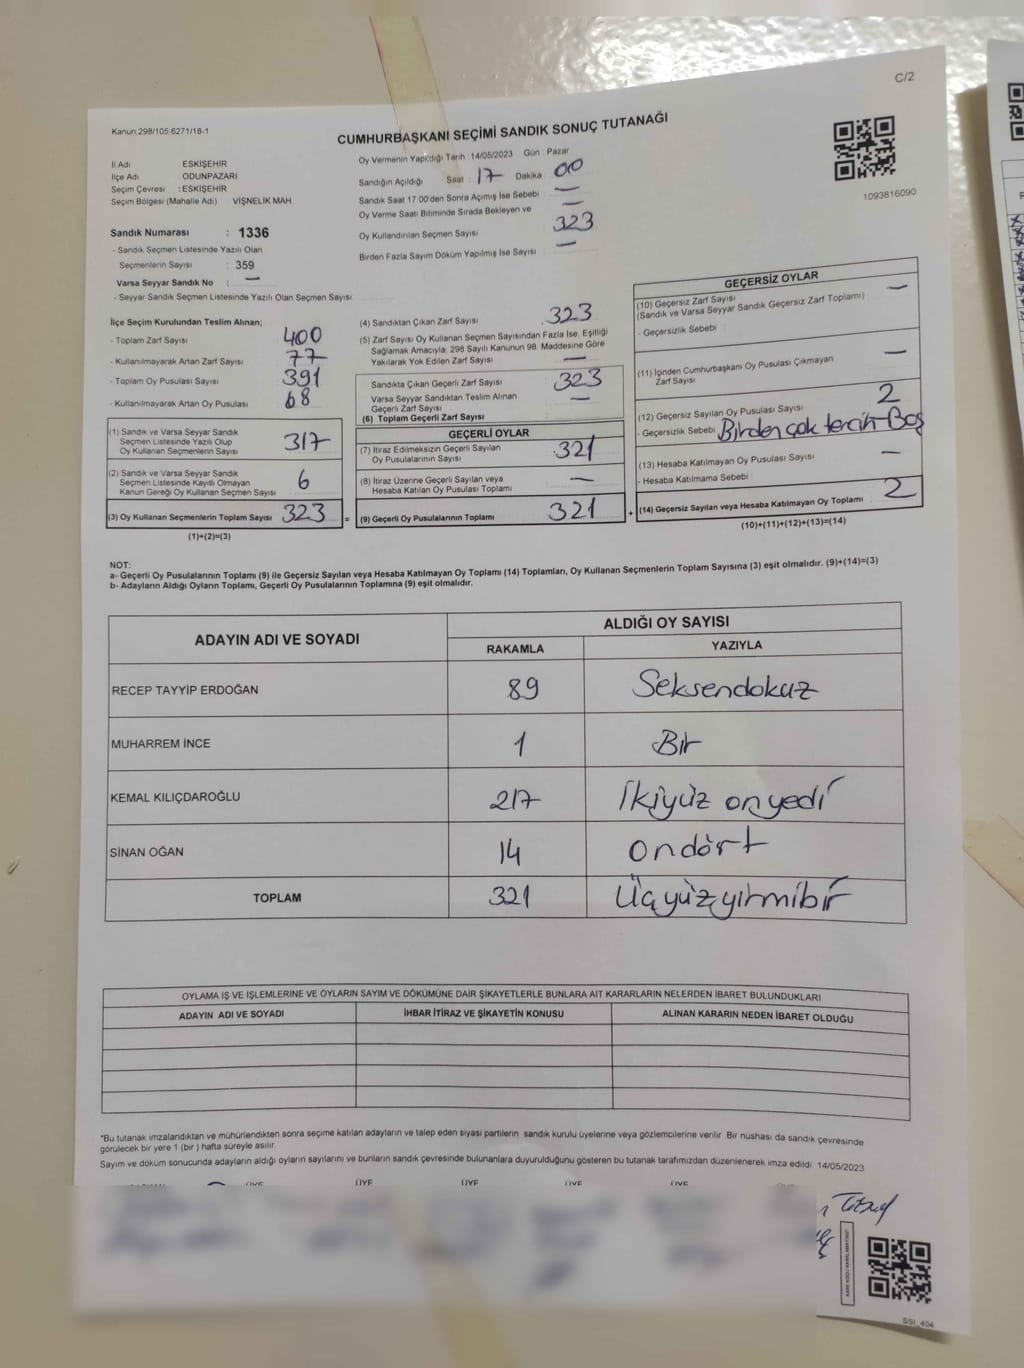 C/2
Kanun:298/105,6271/18-1
CUMHURBAŞKANI SEÇİMİ SANDIK SONUÇ TUTANAĞI
İl Adı ESKİŞEHİR
İlçe Adı ODUNPAZARI
Seçim Çevresi : ESKİŞEHİR
Seçim Bölgesi (Mahalle Adı) VİŞNELİK MAH.
Sandık Numarası : 1336
- Sandık Seçmen Listesinde Yazılı Olan
Seçmenlerin Sayısı : 359
Varsa Seyyar Sandık No : —
- Seyyar Sandık Seçmen Listesinde Yazılı Olan Seçmen Sayısı
Oy Vermenin Yapıldığı Tarih 14/05/2023 Gün Pazar
Sandığın Açıldığı Saat : 17 Dakika 00
Sandık Saat 17.00'den Sonra Açımış İse Sebebi —
Oy Verme Saati Bitiminde Sırada Bekleyen ve —
Oy Kullandırılan Seçmen Sayısı 323
Birden Fazla Sayım Döküm Yapılmış İse Sayısı —
1093816090
İlçe Seçim Kurulundan Teslim Alınan;
- Toplam Zarf Sayısı 400
- Kullanılmayarak Artan Zarf Sayısı 77
- Toplam Oy Pusulası Sayısı 391
- Kullanılmayarak Artan Oy Pusulası 68
(1) Sandık ve Varsa Seyyar Sandık
Seçmen Listesinde Yazılı Olup
Oy Kullanan Seçmenlerin Sayısı 317
(2) Sandık ve Varsa Seyyar Sandık
Seçmen Listesinde Kayıtlı Olmayan
Kanun Gereği Oy Kullanan Seçmen Sayısı 6
(3) Oy Kullanan Seçmenlerin Toplam Sayısı 323 =
(1)+(2)=(3)
(4) Sandıktan Çıkan Zarf Sayısı 323
(5) Zarf Sayısı Oy Kullanan Seçmen Sayısından Fazla İse, Eşitliği
Sağlamak Amacıyla, 298 Sayılı Kanunun 98. Maddesine Göre
Yakılarak Yok Edilen Zarf Sayısı —
Sandıkta Çıkan Geçerli Zarf Sayısı 323
Varsa Seyyar Sandıktan Teslim Alınan
Geçerli Zarf Sayısı —
(6) Toplam Geçerli Zarf Sayısı
GEÇERLİ OYLAR
(7) İtiraz Edilmeksizin Geçerli Sayılan
Oy Pusulalarının Sayısı 321
(8) İtiraz Üzerine Geçerli Sayılan veya
Hesaba Katılan Oy Pusulası Toplamı —
(9) Geçerli Oy Pusulalarının Toplamı 321 +
GEÇERSİZ OYLAR
(10) Geçersiz Zarf Sayısı
(Sandık ve Varsa Seyyar Sandık Geçersiz Zarf Toplamı) —
- Geçersizlik Sebebi
(11) İçinden Cumhurbaşkanı Oy Pusulası Çıkmayan
Zarf Sayısı —
(12) Geçersiz Sayılan Oy Pusulası Sayısı 2
- Geçersizlik Sebebi Birden çok tercih-Boş
(13) Hesaba Katılmayan Oy Pusulası Sayısı —
- Hesaba Katılmama Sebebi
(14) Geçersiz Sayılan veya Hesaba Katılmayan Oy Toplamı 2
(10)+(11)+(12)+(13)=(14)
NOT:
a- Geçerli Oy Pusulalarının Toplamı (9) ile Geçersiz Sayılan veya Hesaba Katılmayan Oy Toplamı (14) Toplamları, Oy Kullanan Seçmenlerin Toplam Sayısına (3) eşit olmalıdır. (9)+(14)=(3)
b- Adayların Aldığı Oyların Toplamı, Geçerli Oy Pusulalarının Toplamına (9) eşit olmalıdır.
ADAYIN ADI VE SOYADI ALDIĞI OY SAYISI
RAKAMLA YAZIYLA
RECEP TAYYİP ERDOĞAN 89 Seksendokuz
MUHARREM İNCE 1 Bir
KEMAL KILIÇDAROĞLU 217 İkiyüz onyedi
SİNAN OĞAN 14 ondört
TOPLAM 321 Üçyüzyirmibir
OYLAMA İŞ VE İŞLEMLERİNE VE OYLARIN SAYIM VE DÖKÜMÜNE DAİR ŞİKAYETLERLE BUNLARA AİT KARARLARIN NELERDEN İBARET BULUNDUKLARI
ADAYIN ADI VE SOYADI İHBAR İTİRAZ VE ŞİKAYETİN KONUSU ALINAN KARARIN NEDEN İBARET OLDUĞU
*Bu tutanak imzalandıktan ve mühürlendikten sonra seçime katılan adayların ve talep eden siyasi partilerin sandık kurulu üyelerine veya gözlemcilerine verilir. Bir nushası da sandık çevresinde
görülecek bir yere 1 (bir ) hafta süreyle asılır.
Sayım ve döküm sonucunda adayların aldığı oyların sayılarını ve bunların sandık çevresinde bulunanlara duyurulduğunu gösteren bu tutanak tarafımızdan düzenlenerek imza edildi. 14/05/2023
ÜYE ÜYE ÜYE ÜYE ÜYE
SSI_404